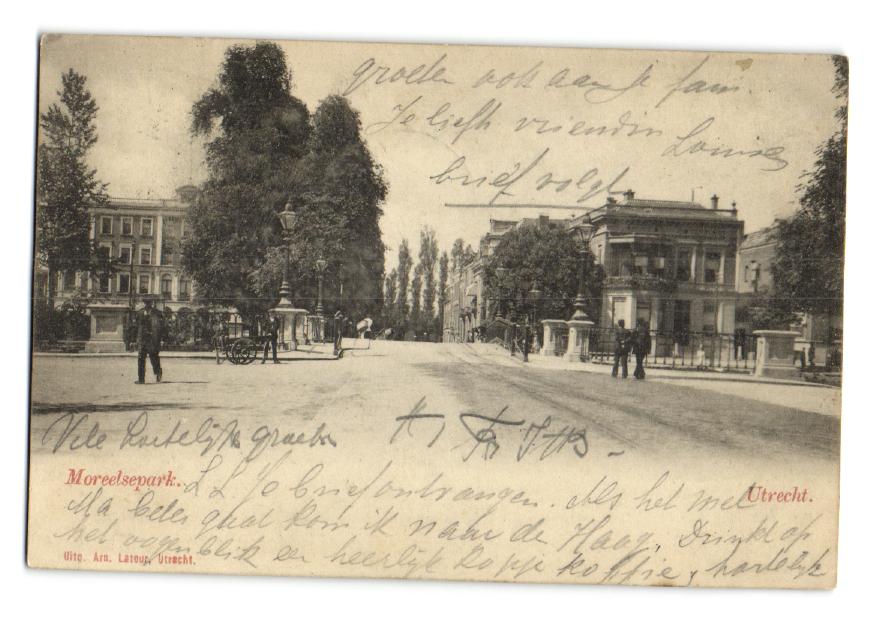 groeten ook aan je fam.
Je liefh vriendin
Louise
brief volgt
Vele hartelijke groeten
Moreelsepark.
Utrecht.
L L Je brief ontvangen. Als het met
Ma beter gaat kom ik naar de Haag. Drinkt op
het oogenblik een heerlijk kopje koffie, hartelijk
Uitg. Arn. Latour, Utrecht.